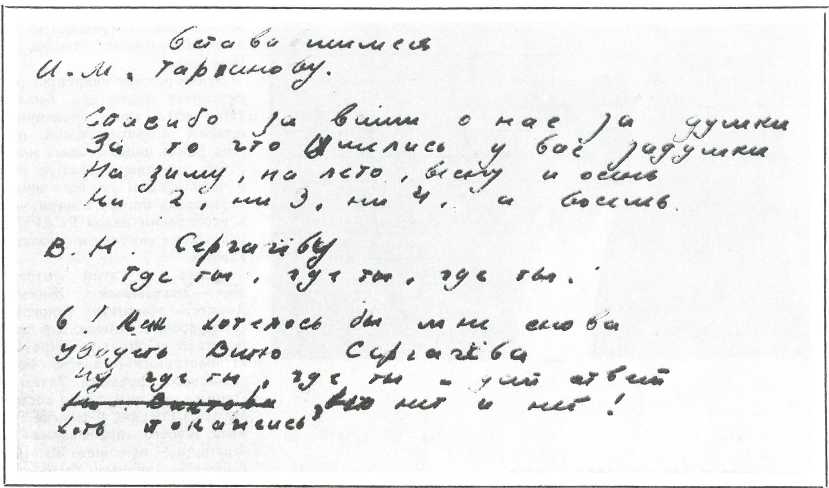 Оставшимся
И. М. Тарханову.
Спасибо за ваши о нас за думки
За то что имелись у вас задумки
На зиму, на лето, весну и осень
Ни 2, ни 3, ни 4, а восемь.
В. Н. Сергачёву
Где ты, где ты, где ты.
О! Как хотелось бы мне снова
Увидеть Витю Сергачёва
Ну где ты, где ты – дай ответ
нет и нет!
Хоть покажись